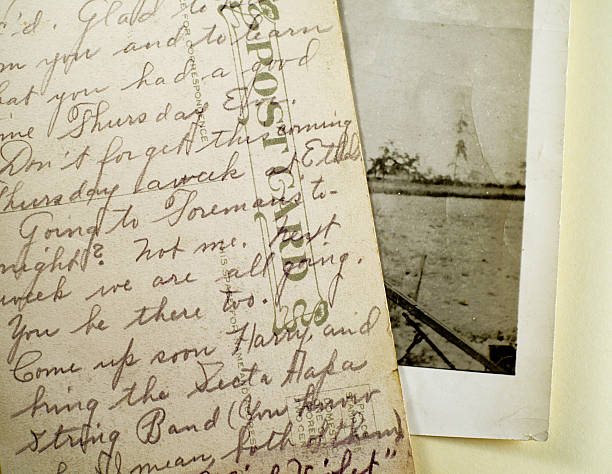 c'd. Glad to
m you and to learn
hat you had a good
ime Thursday Eve.
Don't forget this coming
Thursday a week at Ethels
Going to Foremans to-
night? Not me. Next
week we are all going.
You be there too.
Come up soon Harry, and
bring the Zecta Hapa
String Band (You know
I mean, both of them)
Violet"
POST CARD
FOR CORRESPONDENCE